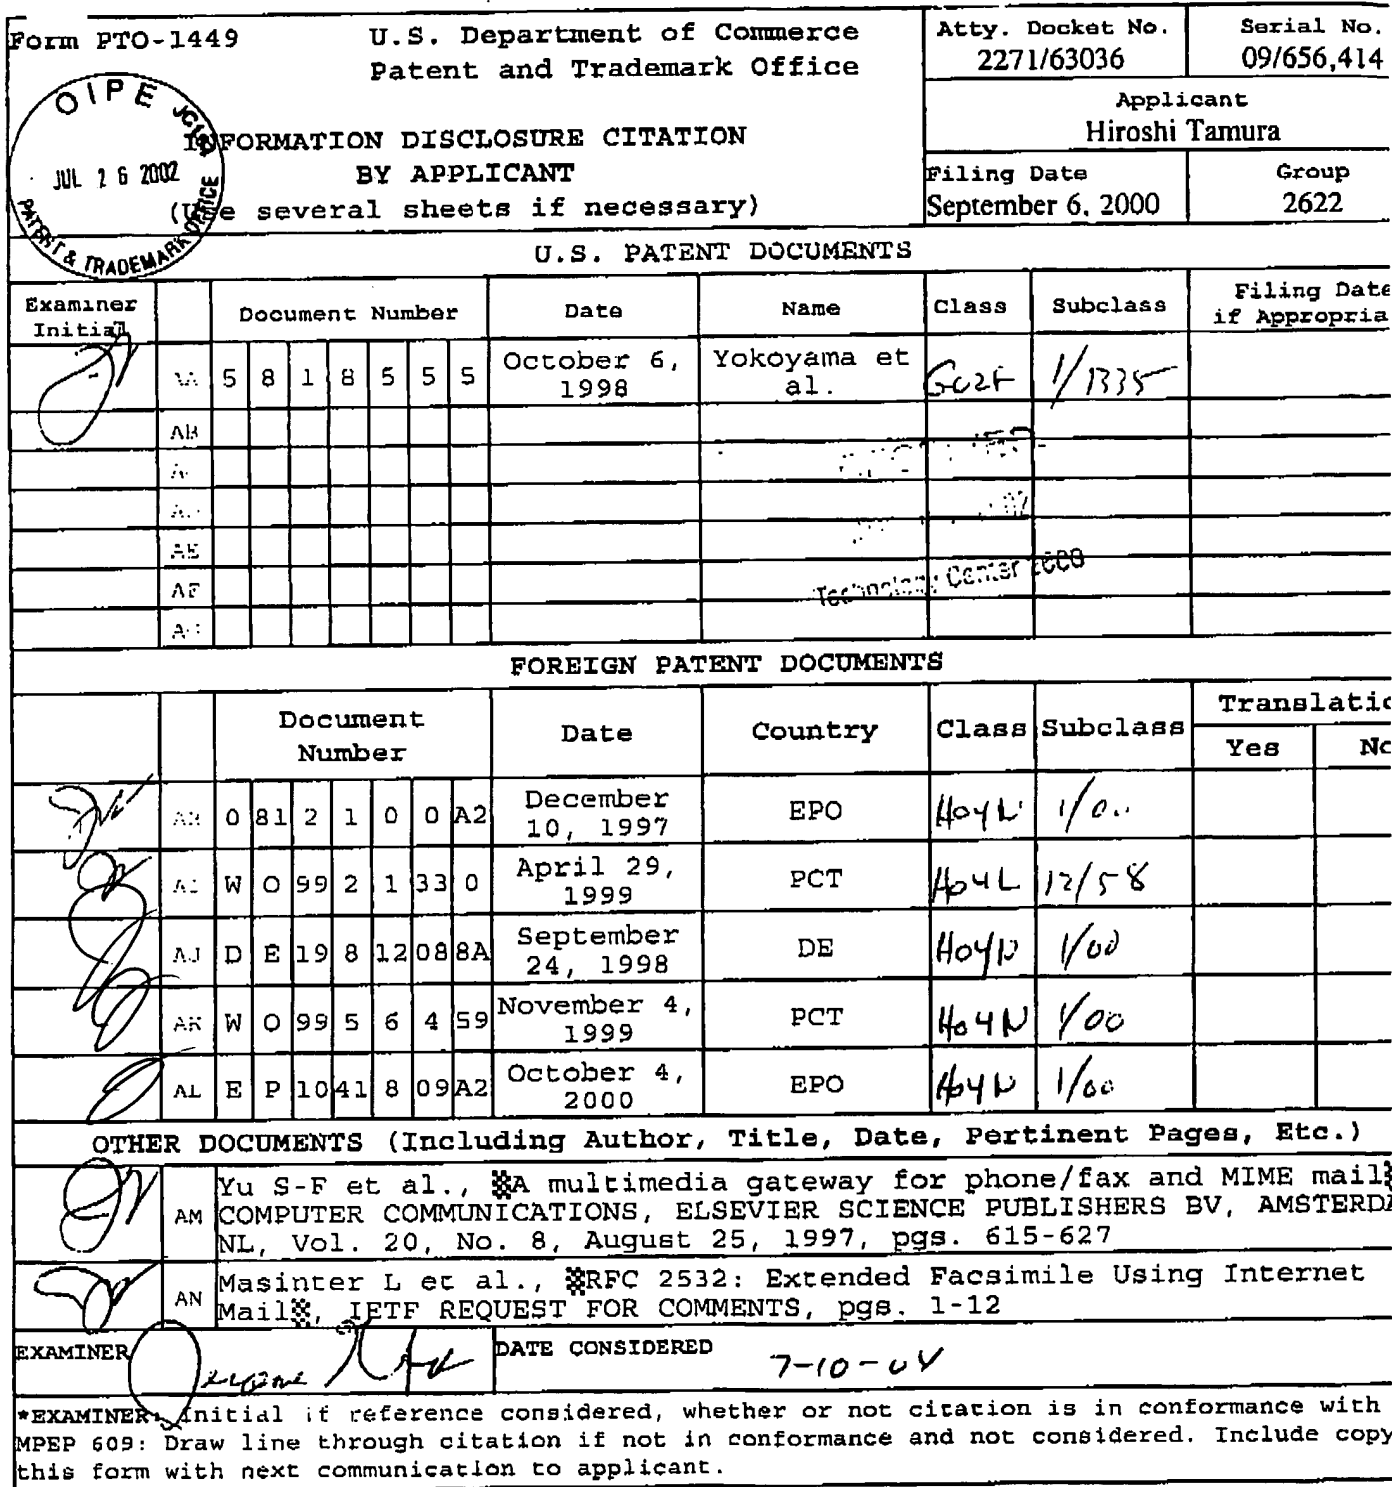 Form PTO-1449
U.S. Department of Commerce
Patent and Trademark Office
Atty. Docket No.
2271/63036
Serial No.
09/656,414
OIPE
JUL 26 2002
PATENT & TRADEMARK OFFICE
INFORMATION DISCLOSURE CITATION
BY APPLICANT
(Use several sheets if necessary)
Applicant
Hiroshi Tamura
Filing Date
September 6, 2000
Group
2622
U.S. PATENT DOCUMENTS
Examiner Initial Document Number Date Name Class Subclass Filing Date
if Appropria
5 8 1 8 5 5 5 October 6, 1998 Yokoyama et al. G02F 1/1335
AB
AE
AF
Technology Center 2600
FOREIGN PATENT DOCUMENTS
Document Number Date Country Class Subclass Translatio
Yes No
0 81 2 1 0 0 A2 December 10, 1997 EPO H04N 1/00
W O 99 2 1 33 0 April 29, 1999 PCT H04L 12/58
AJ D E 19 8 12 08 8A September 24, 1998 DE H04N 1/00
AK W O 99 5 6 4 59 November 4, 1999 PCT H04N 1/00
AL E P 10 41 8 09 A2 October 4, 2000 EPO H04N 1/00
OTHER DOCUMENTS (Including Author, Title, Date, Pertinent Pages, Etc.)
AM Yu S-F et al., A multimedia gateway for phone/fax and MIME mail
COMPUTER COMMUNICATIONS, ELSEVIER SCIENCE PUBLISHERS BV, AMSTERDA
NL, Vol. 20, No. 8, August 25, 1997, pgs. 615-627
AN Masinter L et al., RFC 2532: Extended Facsimile Using Internet
Mail, IETF REQUEST FOR COMMENTS, pgs. 1-12
EXAMINER
DATE CONSIDERED
7-10-04
*EXAMINER: Initial if reference considered, whether or not citation is in conformance with
MPEP 609: Draw line through citation if not in conformance and not considered. Include copy
this form with next communication to applicant.